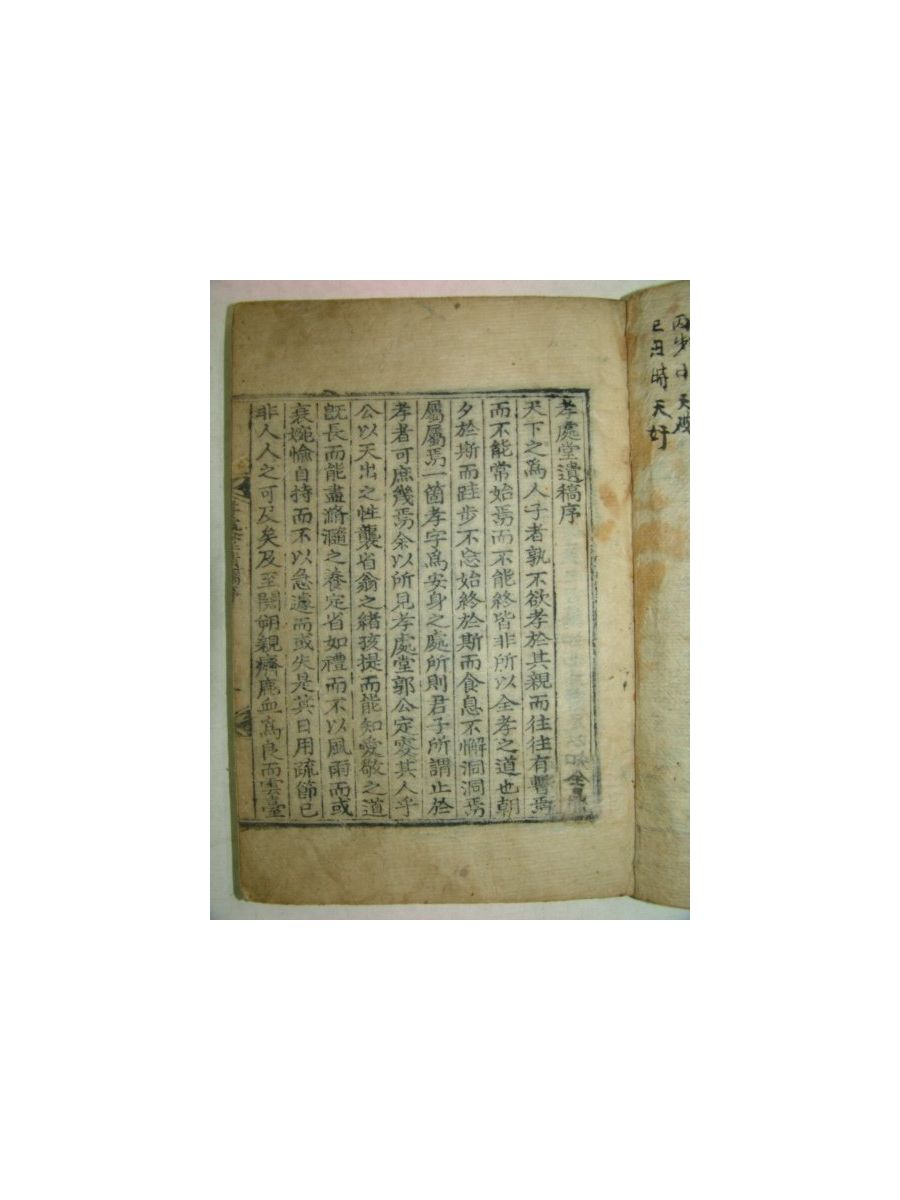 丙步日天殷
己丑時天好
孝處堂遺稿序
天下之爲人子者孰不欲孝於其親而往往有暫焉
而不能常始焉而不能終皆非所以全孝之道也朝
夕於斯而跬步不忘始終於斯而食息不懈洞洞焉
屬屬焉一箇孝字爲安身之處所則君子所謂止於
孝者可庶幾焉余以所見孝處堂郭公定變其人乎
公以天出之性襲省翁之緒孩提而能知愛敬之道
旣長而能盡滫瀡之養定省如禮而不以風雨而或
衰婉愉自持而不以急遽而或失是其日用疏節已
非人人之可及矣及至關朔親癠鹿血爲良而雲臺